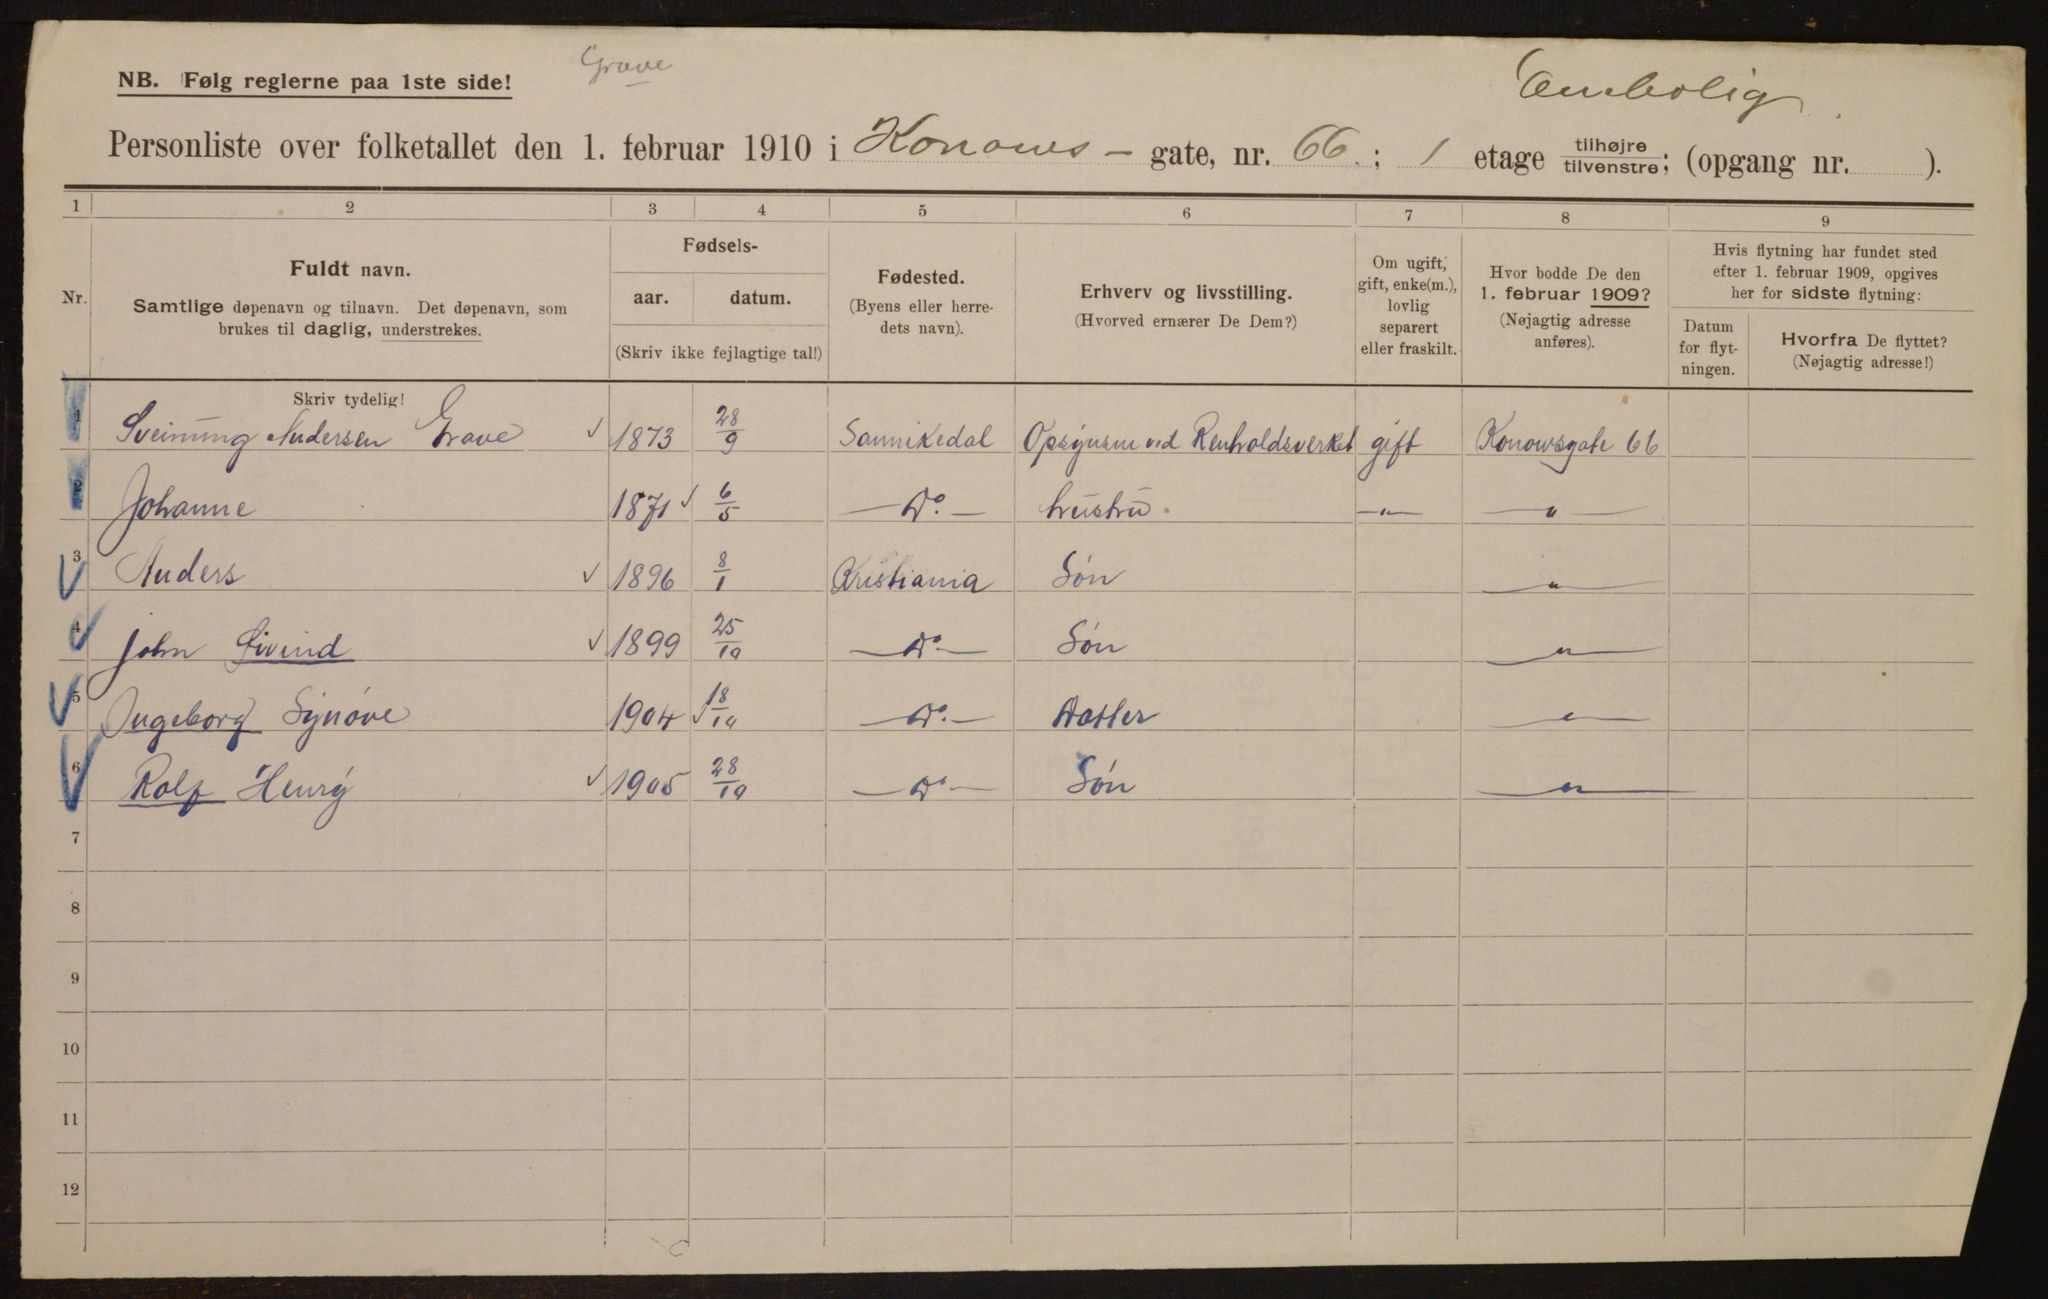 Grave
NB. Følg reglerne paa 1ste side!
Enebolig
Personliste over folketallet den 1. februar 1910 i Konows - gate, nr. 66.; 1 etage tilhøjre tilvenstre; (opgang nr. ).
1 2 3 4 5 6 7 8 9
Nr.
Fuldt navn.
Samtlige døpenavn og tilnavn. Det døpenavn, som
brukes til daglig, understrekes.
Fødsels-
aar. datum.
(Skriv ikke fejlagtige tal!)
Fødested.
(Byens eller herre-
dets navn).
Erhverv og livsstilling.
(Hvorved ernærer De Dem?)
Om ugift,
gift, enke(m.),
lovlig
separert
eller fraskilt.
Hvor bodde De den
1. februar 1909?
(Nøjagtig adresse
anføres).
Hvis flytning har fundet sted
efter 1. februar 1909, opgives
her for sidste flytning:
Datum
for flyt-
ningen.
Hvorfra De flyttet?
(Nøjagtig adresse!)
Skriv tydelig!
1 Sveinung Andersen Grave 1873 28/9 Sannikedal Opsynsm ved Renholdsverket gift Konowsgate 66
2 Johanne 1871 6/5 — Do. — hustru. — " — — " —
3 Anders 1896 8/1 Kristiania Søn — " —
4 John Øivind 1899 25/10 — Do. — Søn — " —
5 Ingeborg Synøve 1904 18/10 — Do. — Datter — " —
6 Rolf Henry 1905 28/10 — Do — Søn — " —
7
8
9
10
11
12